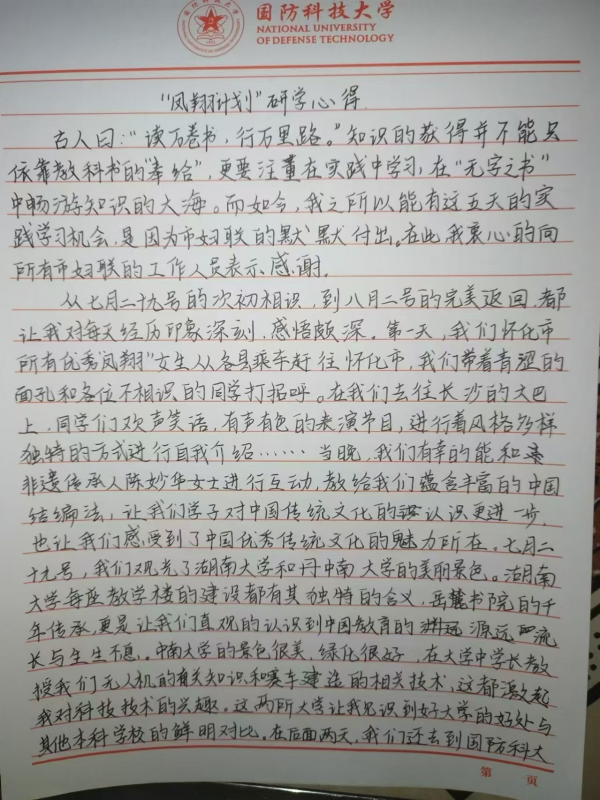 国防科技大学
NATIONAL UNIVERSITY
OF DEFENSE TECHNOLOGY
“凤翔计划”研学心得
古人曰:“读万卷书,行万里路。”知识的获得并不能只
依靠教科书的“奉给”,更要注重在实践中学习,在“无字之书”
中畅游知识的大海。而如今,我之所以能有这五天的实
践学习机会,是因为市妇联的默默付出。在此我衷心的向
所有市妇联的工作人员表示感谢。
从七月二十九号的次初相识,到八月二号的完美返回,都
让我对每天经历印象深刻,感悟颇深。第一天,我们怀化市
所有优秀凤翔”女生从各县乘车赶往怀化市,我们带着青涩的
面孔和各位不相识的同学打招呼。在我们去往长沙的大巴
上,同学们欢声笑语,有声有色的表演节目,进行着风格多样
独特的方式进行自我介绍……当晚,我们有幸的能和
非遗传承人陈妙华女士进行互动,教给我们蕴含丰富的中国
结编法,让我们学子对中国传统文化的认识更进一步,
也让我们感受到了中国优秀传统文化的魅力所在。七月二
十九号,我们观光了湖南大学和中南大学的美丽景色。湖南
大学每座教学楼的建设都有其独特的含义,岳麓书院的千
年传承,更是让我们直观的认识到中国教育的源远流
长与生生不息。中南大学的景色很美,绿化很好,在大学中学长教
授我们无人机的有关知识和赛车建造的相关技术,这都激起
我对科技技术的兴趣。这两所大学让我见识到好大学的好处与
其他本科学校的鲜明对比。在后面两天,我们还去到国防科大
第 页